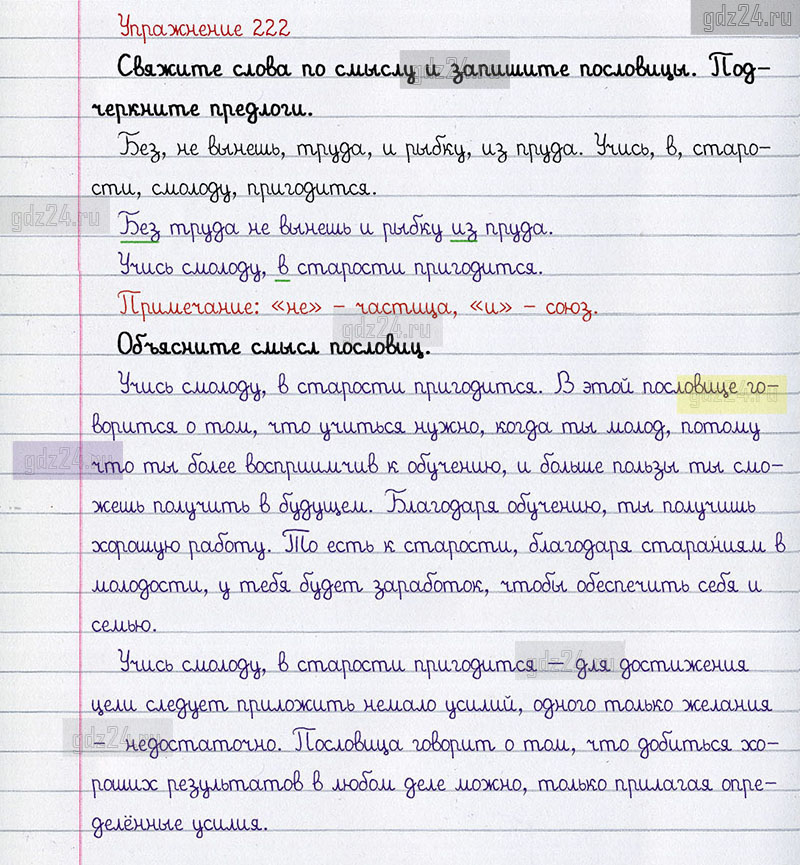 gdz24.ru
Упражнение 222
Свяжите слова по смыслу и запишите пословицы. Под-
gdz24.ru
черкните предлоги.
Без, не вынешь, труда, и рыбку, из пруда. Учись, в, старо-
сти, смолоду, пригодится.
gdz24.ru
Без труда не вынешь и рыбку из пруда.
Учись смолоду, в старости пригодится.
Примечание: «не» – частица, «и» – союз.
gdz24.ru
Объясните смысл пословиц.
Учись смолоду, в старости пригодится. В этой пословице го-
gdz24.ru
ворится о том, что учиться нужно, когда ты молод, потому
gdz24.ru
что ты более восприимчив к обучению, и больше пользы ты смо-
жешь получить в будущем. Благодаря обучению, ты получишь
хорошую работу. То есть к старости, благодаря стараниям в
молодости, у тебя будет заработок, чтобы обеспечить себя и
семью.
Учись смолоду, в старости пригодится – для достижения
gdz24.ru
цели следует приложить немало усилий, одного только желания
gdz24.ru
– недостаточно. Пословица говорит о том, что добиться хо-
роших результатов в любом деле можно, только прилагая опре-
делённые усилия.